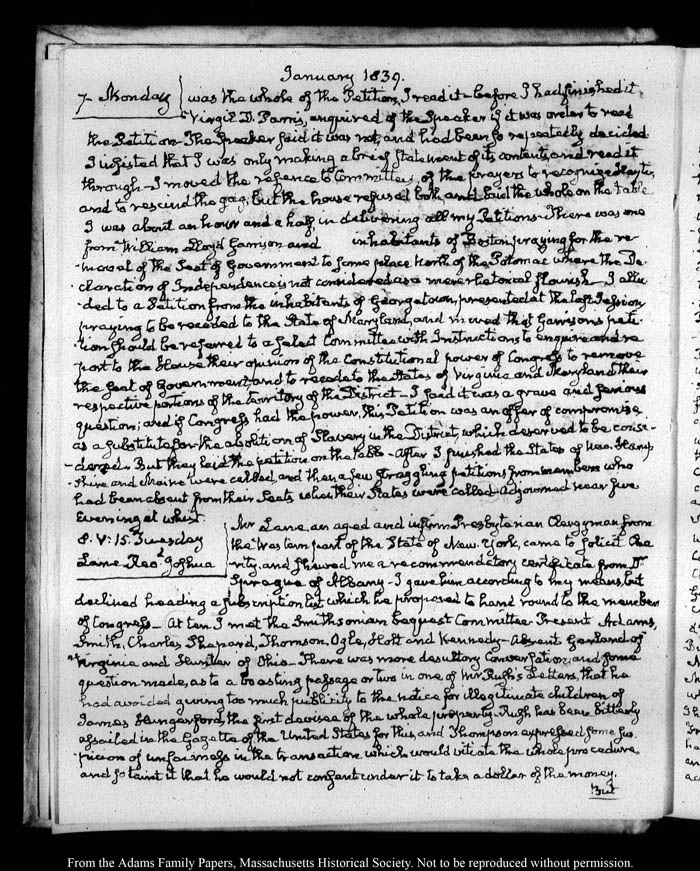 January 1839.
7. Monday was the whole of the Petition, I read it—before I had finished it
Virgil D. Parris, enquired of the Speaker if it was order to read
the Petition—The Speaker said it was not, and had been so repeatedly decided.
I insisted that I was only making a brief statement of its contents, and read it
through—I moved the refence to Committees, of the prayers to recognize Hayti,
and to rescind the gag, but the house refused both, and laid the whole on the table
I was about an hour and a half in delivering all my Petitions—There was one
from William Lloyd Garrison and inhabitants of Boston, praying for the re-
-moval of the Seat of Government to some place North of the Potomac where the De-
-claration of Independence is not considered as a mere rhetorical flourish—I allu-
-ded to a Petition from the inhabitants of Georgetown, presented at the last Session
praying to be receded to the State of Maryland, and moved that Garrison's peti-
-tion should be referred to a select Committee with Instructions to enquire and re-
port to the House their opinion of the Constitutional power of Congress to remove
the Seat of Government, and to recede to the States of Virginia and Maryland their
respective portions of the Territory of the District—I said it was a grave and serious
question; and if Congress had the power, this Petition was an offer of compromise
as a substitute for the abolition of Slavery in the District, which deserved to be consi-
-dered. But they laid the petition on the table—After I finished the States of New Hamp-
-shire and Maine were called, and then a few straggling petitions from members who
had been absent from their Seats when their States were called—Adjourned near five
Evening at whist.
8. V:15. Tuesday Mr Lane, an aged and infirm Presbyterian Clergyman from
the Western part of the State of New-York, came to solicit Cha-
Lane Revd Joshua rity, and shewed me a recommendatory certificate from Dr
Sprague of Albany—I gave him according to my means, but
declined heading a subscription list which he proposed to hand round to the members
of Congress—At ten I met the Smithsonian bequest Committee. Present Adams,
Smith, Charles Shepard, Thomson, Ogle, Holt and Kennedy—Absent Garland of
Virginia and Hunter of Ohio—There was more desultory Conversation, and some
question made, as to a boasting passage or two in one of Mr Rush's Letters, that he
had avoided giving too much publicity to the notice for illegitimate children of
James Hungerford, the first devisee of the whole property—Rush has been bitterly
assailed in the Gazette of the United States for this, and Thompson expressed some sus-
picion of unfairness in the transaction which would vitiate the whole procedure
and so taint it that he would not consent under it to take a dollar of the money.
But
From the Adams Family Papers, Massachusetts Historical Society. Not to be reproduced without permission.